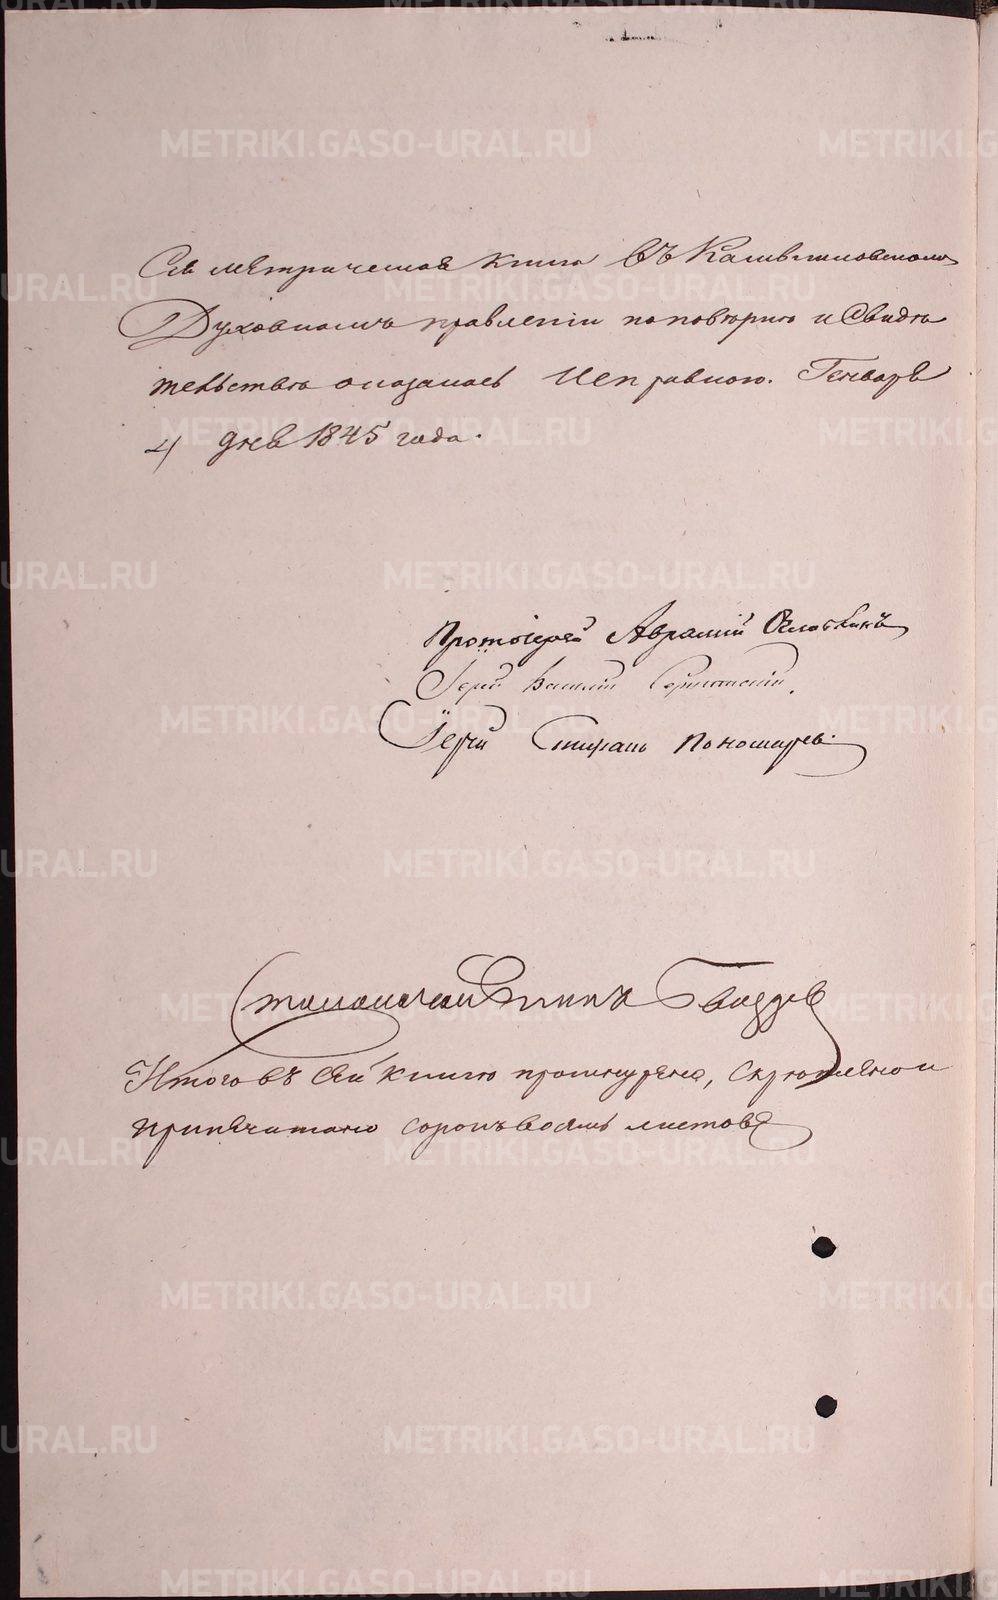 Сія метрическая книга въ Камышловскомъ
Духовномъ правленіи по повѣркѣ и свидѣ
тельству оказалась исправною. Генваря
4 дня 1845 года.
Протоіерей Аврамій
Іерей Василій
Іерей Стефанъ Пономаревъ
Столоначальникъ
Итого въ сей книгѣ прошнурено, скрѣплено и
припечатано сорокъ восемь листовъ
METRIKI.GASO-URAL.RU